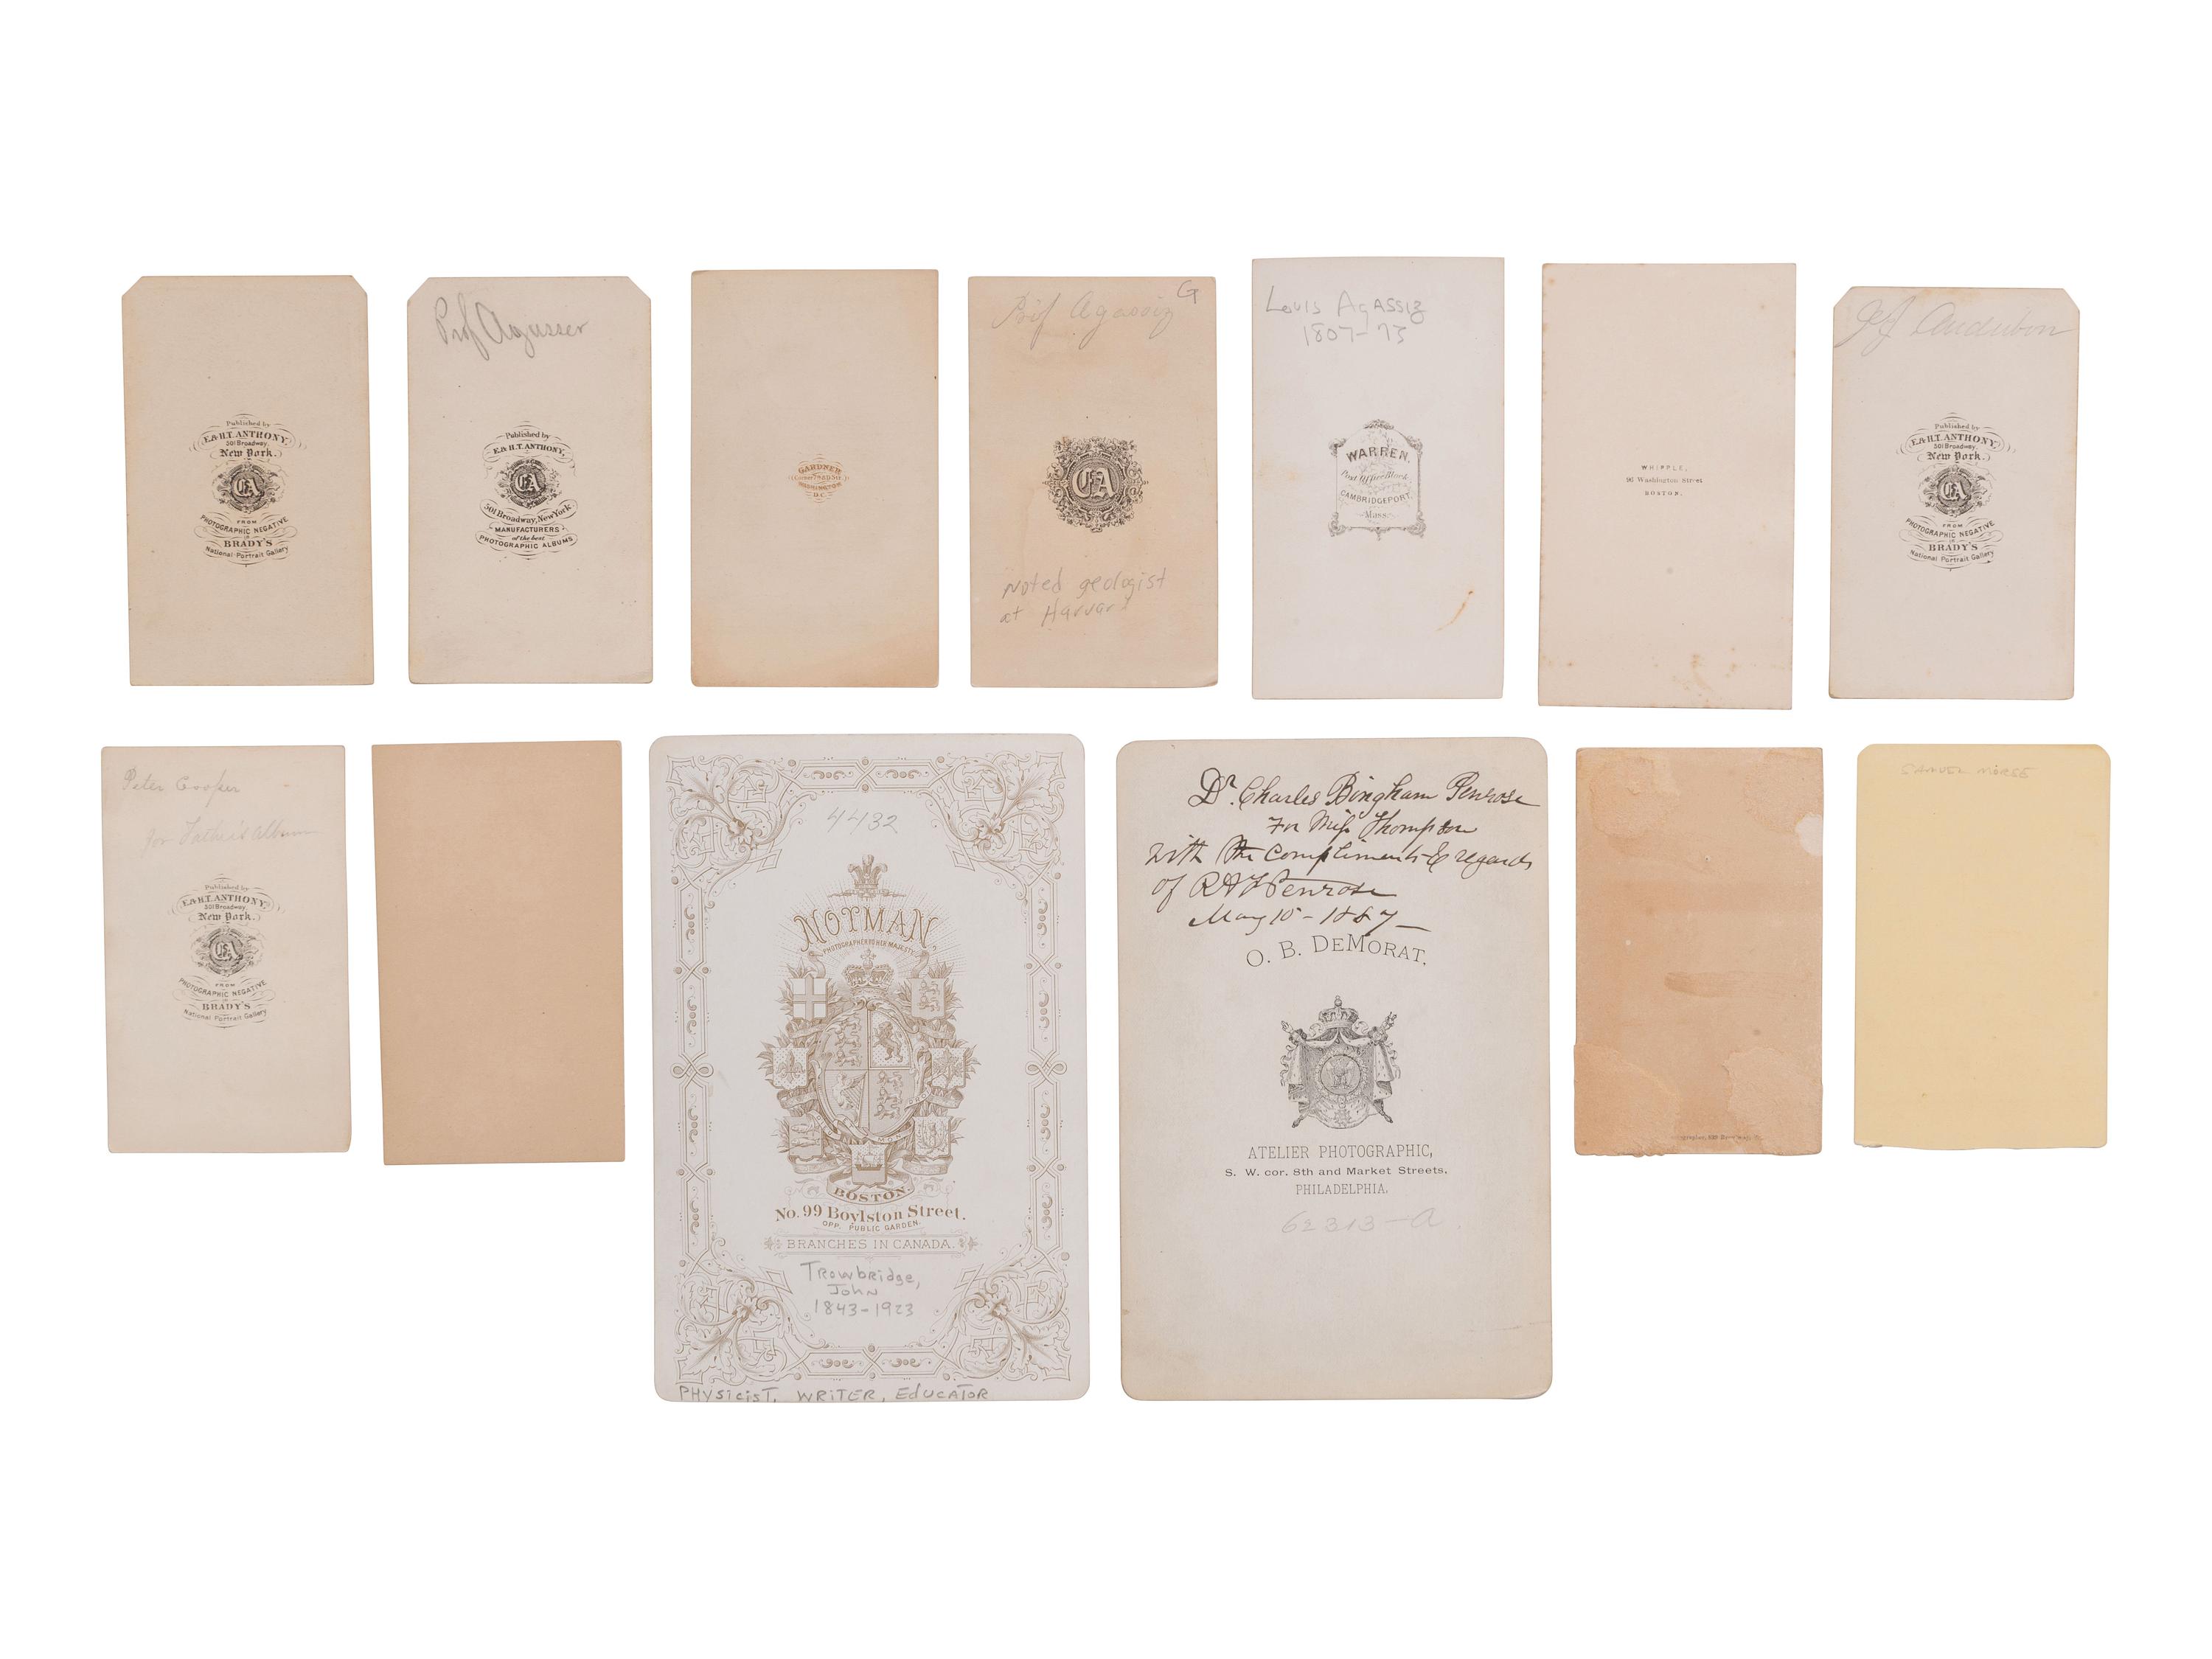 Published by
E. & H.T. ANTHONY,
501 Broadway,
New York.
EA
FROM
PHOTOGRAPHIC NEGATIVE
IN
BRADY'S
National Portrait Gallery
Prof Agusser
Published by
E. & H. T. ANTHONY,
EA
501 Broadway, New York
MANUFACTURERS
of the best
PHOTOGRAPHIC ALBUMS
GARDNER
WASHINGTON
D.C.
G
Prof Agassiz
EA
Noted geologist
at Harvard
Louis Agassiz
1807-73
WARREN,
Post Office Block
CAMBRIDGEPORT,
Mass.
WHIPPLE,
96 Washington Street
BOSTON.
JJ Audubon
Published by
E. & H.T. ANTHONY,
501 Broadway,
New York.
EA
FROM
PHOTOGRAPHIC NEGATIVE
IN
BRADY'S
National Portrait Gallery
Peter Cooper
for Father's Album
Published by
E. & H.T. ANTHONY,
501 Broadway,
New York.
EA
FROM
PHOTOGRAPHIC NEGATIVE
IN
BRADY'S
National Portrait Gallery
4432
NOTMAN,
PHOTOGRAPHER TO HER MAJESTY
BOSTON.
No. 99 Boylston Street.
OPP. PUBLIC GARDEN.
BRANCHES IN CANADA.
Trowbridge,
John
1843-1923
PHYSICIST, WRITER, EDUCATOR
Dr. Charles Bingham Penrose
For Miss Thompson
with the compliments & regards
of RAF Penrose
May 10 - 1887
O. B. DEMORAT.
ATELIER PHOTOGRAPHIC,
S. W. cor. 8th and Market Streets.
PHILADELPHIA.
62313-A
SAMUEL MORSE